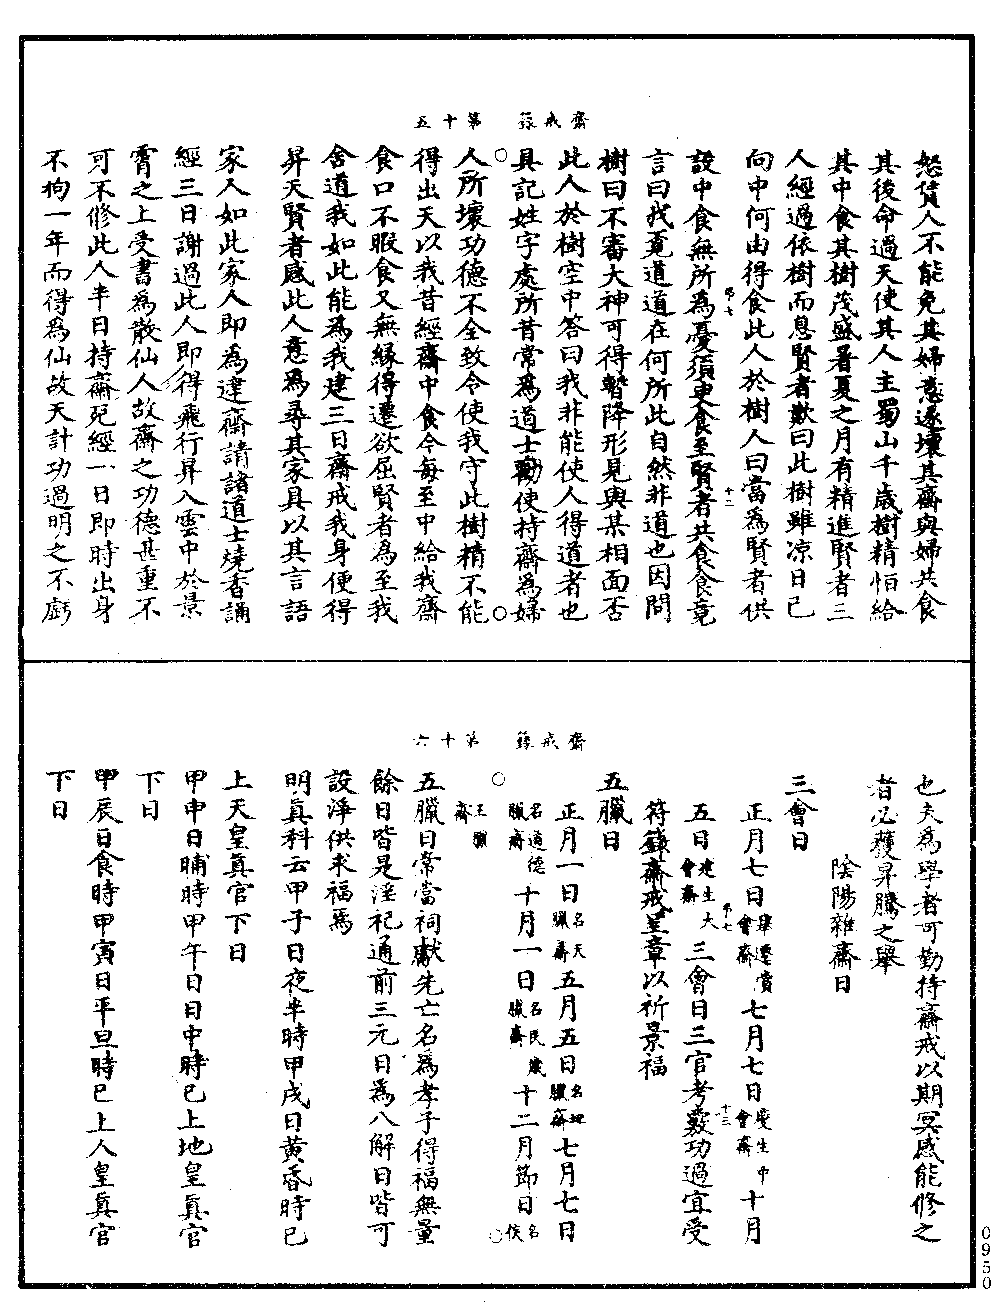 齋戒籙　第十五
恕貸人不能免其婦意遂壞其齋與婦共食
其後命過天使其人主蜀山千歲樹精怕給
其中食其樹茂盛暑夏之月有精進賢者三
人經過依樹而息賢者歎曰此樹雖凉日已
向中何由得食此人於樹人曰當為賢者供
設中食無所為憂須臾食至賢者共食食竟
言曰我覓道道在何所此自然非道也因問
樹曰不審大神可得暫降形見與某相面否
此人於樹空中答曰我非能使人得道者也
具記姓字處所昔常為道士勸使持齋為婦
人所壞功德不全致令使我守此樹精不能
得出天以我昔經齋中食今每至中給我齋
食口不暇食又無緣得遷欲屈賢者為至我
舍道我如此能為我建三日齋戒我身便得
昇天賢者感此人意為尋其家具以其言語
家人如此家人即為建齋請諸道士燒香誦
經三日謝過此人即得飛行昇入雲中於景
霄之上受書為散仙人故齋之功德甚重不
可不修此人半日持齋死經一日即時出身
不拘一年而得為仙故天計功過明之不虧
齋戒籙　第十六
也夫為學者可勤持齋戒以期冥感能修之
者必獲昇騰之舉
陰陽雜齋日
三會日
正月七日舉遷賞會齋七月七日慶生中會齋十月
五日建生大會齋三會日三官考覈功過宜受
符籙齋戒呈章以祈景福
五臘日
正月一日名天臘齋五月五日名地臘齋七月七日
名道德臘齋十月一日名民歲臘齋十二月節日名侯
王臘齋
五臘日常當祠獻先亡名為孝子得福無量
餘日皆是淫祀通前三元日為八解日皆可
設淨供求福焉
明真科云甲子日夜半時甲戌日黃昏時已
上天皇真官下日
甲申日晡時甲午日日中時已上地皇真官
下日
甲辰日食時甲寅日平旦時已上人皇真官
下日
0950